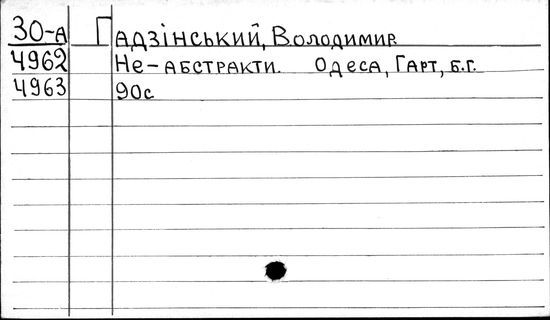 30-А Гадзінський, Володимир
4962 Не-абстракти. Одеса, Гарт, б.г.
4963 90с